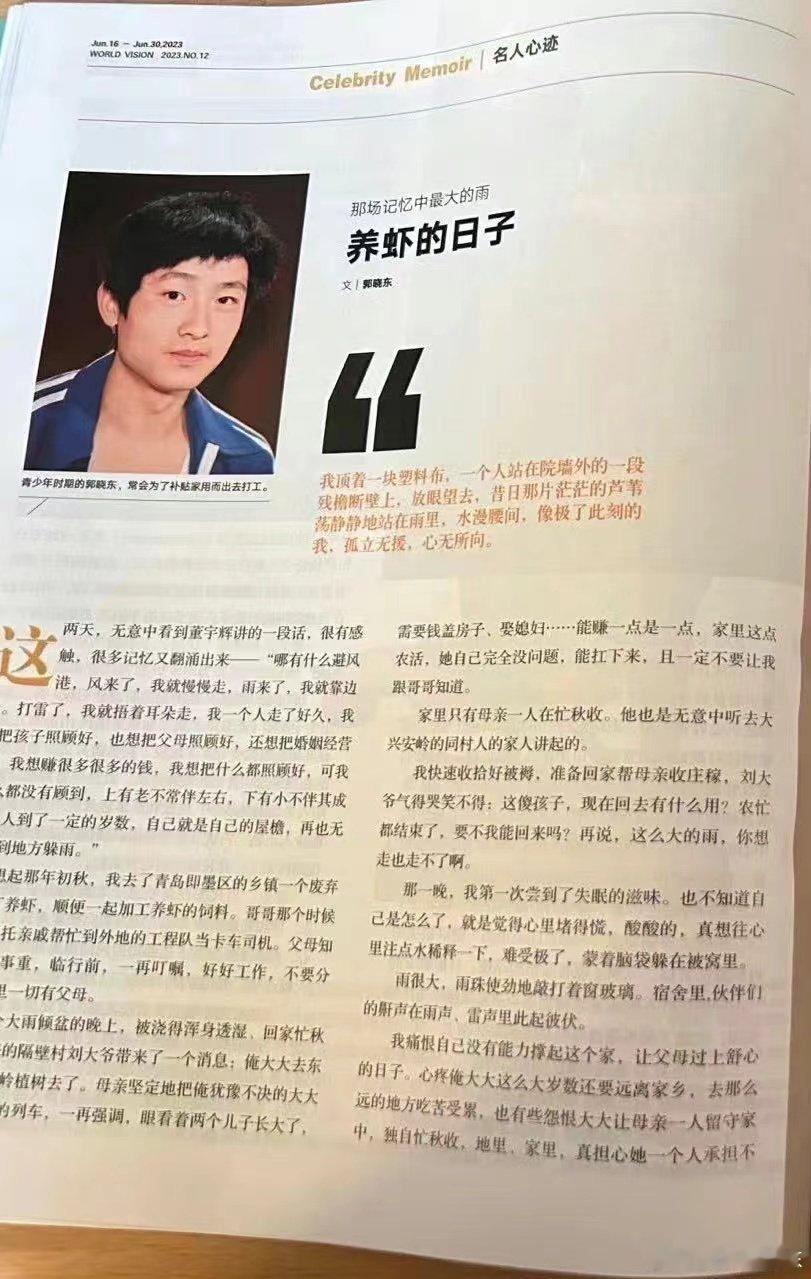 Jun.16 – Jun.30,2023
WORLD VISION 2023.NO.12
Celebrity Memoir | 名人心迹
那场记忆中最大的雨
养虾的日子
文 | 郭晓东
青少年时期的郭晓东，常会为了补贴家用而出去打工。
“
我顶着一块塑料布，一个人站在院墙外的一段
残檐断壁上，放眼望去，昔日那片茫茫的芦苇
荡静静地站在雨里，水漫腰间，像极了此刻的
我，孤立无援，心无所向。
这两天，无意中看到董宇辉讲的一段话，很有感
触，很多记忆又翻涌出来——“哪有什么避风
港，风来了，我就慢慢走，雨来了，我就靠边
。打雷了，我就捂着耳朵走，我一个人走了好久，我
把孩子照顾好，也想把父母照顾好，还想把婚姻经营
。我想赚很多很多的钱，我想把什么都照顾好，可我
么都没有顾到，上有老不常伴左右，下有小不伴其成
人到了一定的岁数，自己就是自己的屋檐，再也无
到地方躲雨。”
想起那年初秋，我去了青岛即墨区的乡镇一个废弃
养虾，顺便一起加工养虾的饲料。哥哥那个时候
托亲戚帮忙到外地的工程队当卡车司机。父母知
事重，临行前，一再叮嘱，好好工作，不要分
里一切有父母。
个大雨倾盆的晚上，被浇得浑身透湿、回家忙秋
的隔壁村刘大爷带来了一个消息：俺大大去东
岭植树去了。母亲坚定地把俺犹豫不决的大大
的列车，一再强调，眼看着两个儿子长大了，
需要钱盖房子、娶媳妇……能赚一点是一点，家里这点
农活，她自己完全没问题，能扛下来，且一定不要让我
跟哥哥知道。
家里只有母亲一人在忙秋收。他也是无意中听去大
兴安岭的同村人的家人讲起的。
我快速收拾好被褥，准备回家帮母亲收庄稼，刘大
爷气得哭笑不得：这傻孩子，现在回去有什么用？农忙
都结束了，要不我能回来吗？再说，这么大的雨，你想
走也走不了啊。
那一晚，我第一次尝到了失眠的滋味。也不知道自
己是怎么了，就是觉得心里堵得慌，酸酸的，真想往心
里注点水稀释一下，难受极了，蒙着脑袋躲在被窝里。
雨很大，雨珠使劲地敲打着窗玻璃。宿舍里,伙伴们
的鼾声在雨声、雷声里此起彼伏。
我痛恨自己没有能力撑起这个家，让父母过上舒心
的日子。心疼俺大大这么大岁数还要远离家乡，去那么
远的地方吃苦受累，也有些怨恨大大让母亲一人留守家
中，独自忙秋收，地里、家里，真担心她一个人承担不